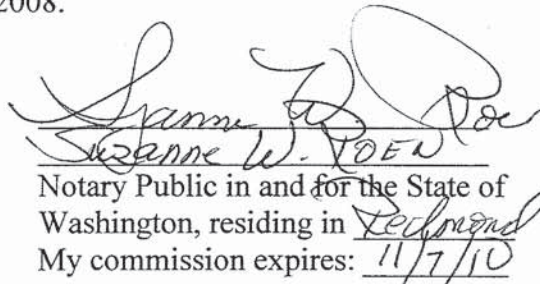 2008.
Suzanne W. Roen
Suzanne W. ROEN
Notary Public in and for the State of
Washington, residing in Redmond
My commission expires: 11/7/10